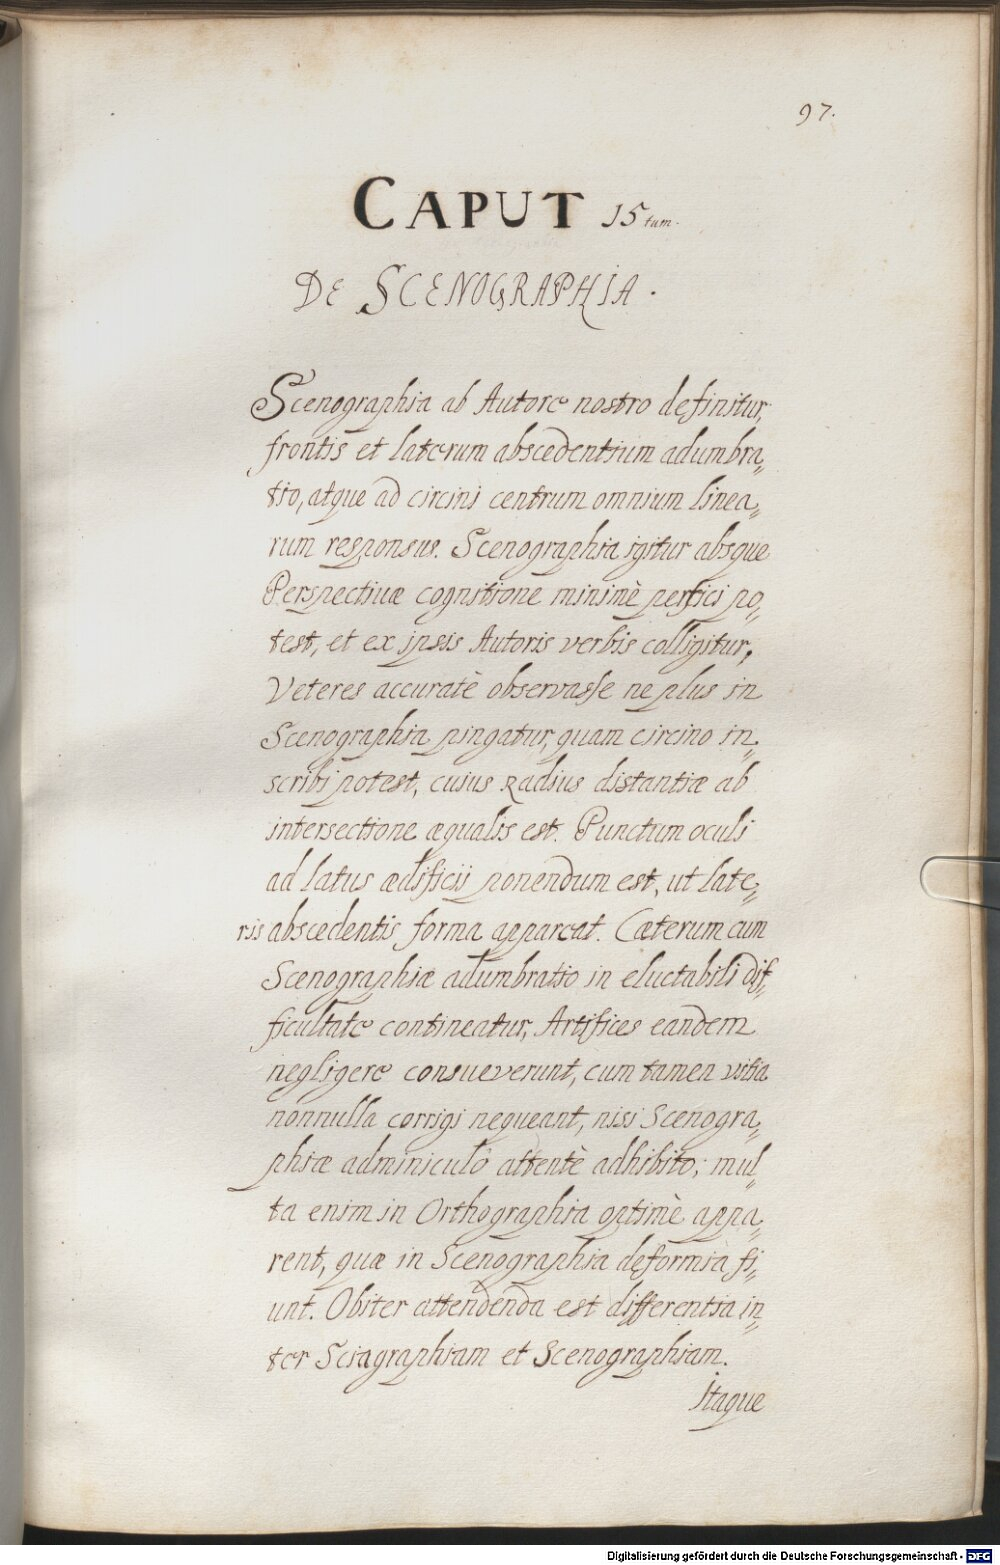 97.
CAPUT 15tum.
DE SCENOGRAPHIA.
Scenographia ab Autore nostro definitur,
frontis et laterum abscedentium adumbra„
tio, atque ad circini centrum omnium linea„
rum responsus. Scenographia igitur absque
Perspectiuæ cognitione minimè perfici po„
test, et ex ipsis Autoris verbis colligitur,
Veteres accuratè observasse ne plus in
Scenographia pingatur, quam circino in„
scribi potest, cuius Radius distantiæ ab
intersectione æqualis est. Punctum oculi
ad latus ædificij ponendum est, ut late„
ris abscedentis forma appareat. Cæterum cum
Scenographiæ adumbratio in eluctabili dif„
ficultate contineatur, Artifices eandem
negligere consueverunt, cum tamen vitia
nonnulla corrigi nequeant, nisi Scenogra„
phiæ adminiculo attentè adhibito; mul„
ta enim in Orthographia optimè appa„
rent, quæ in Scenographia deformia fi„
unt. Obiter attendenda est differentia in„
ter Sciagraphiam et Scenographiam.
Itaque
Digitalisierung gefördert durch die Deutsche Forschungsgemeinschaft - DFG